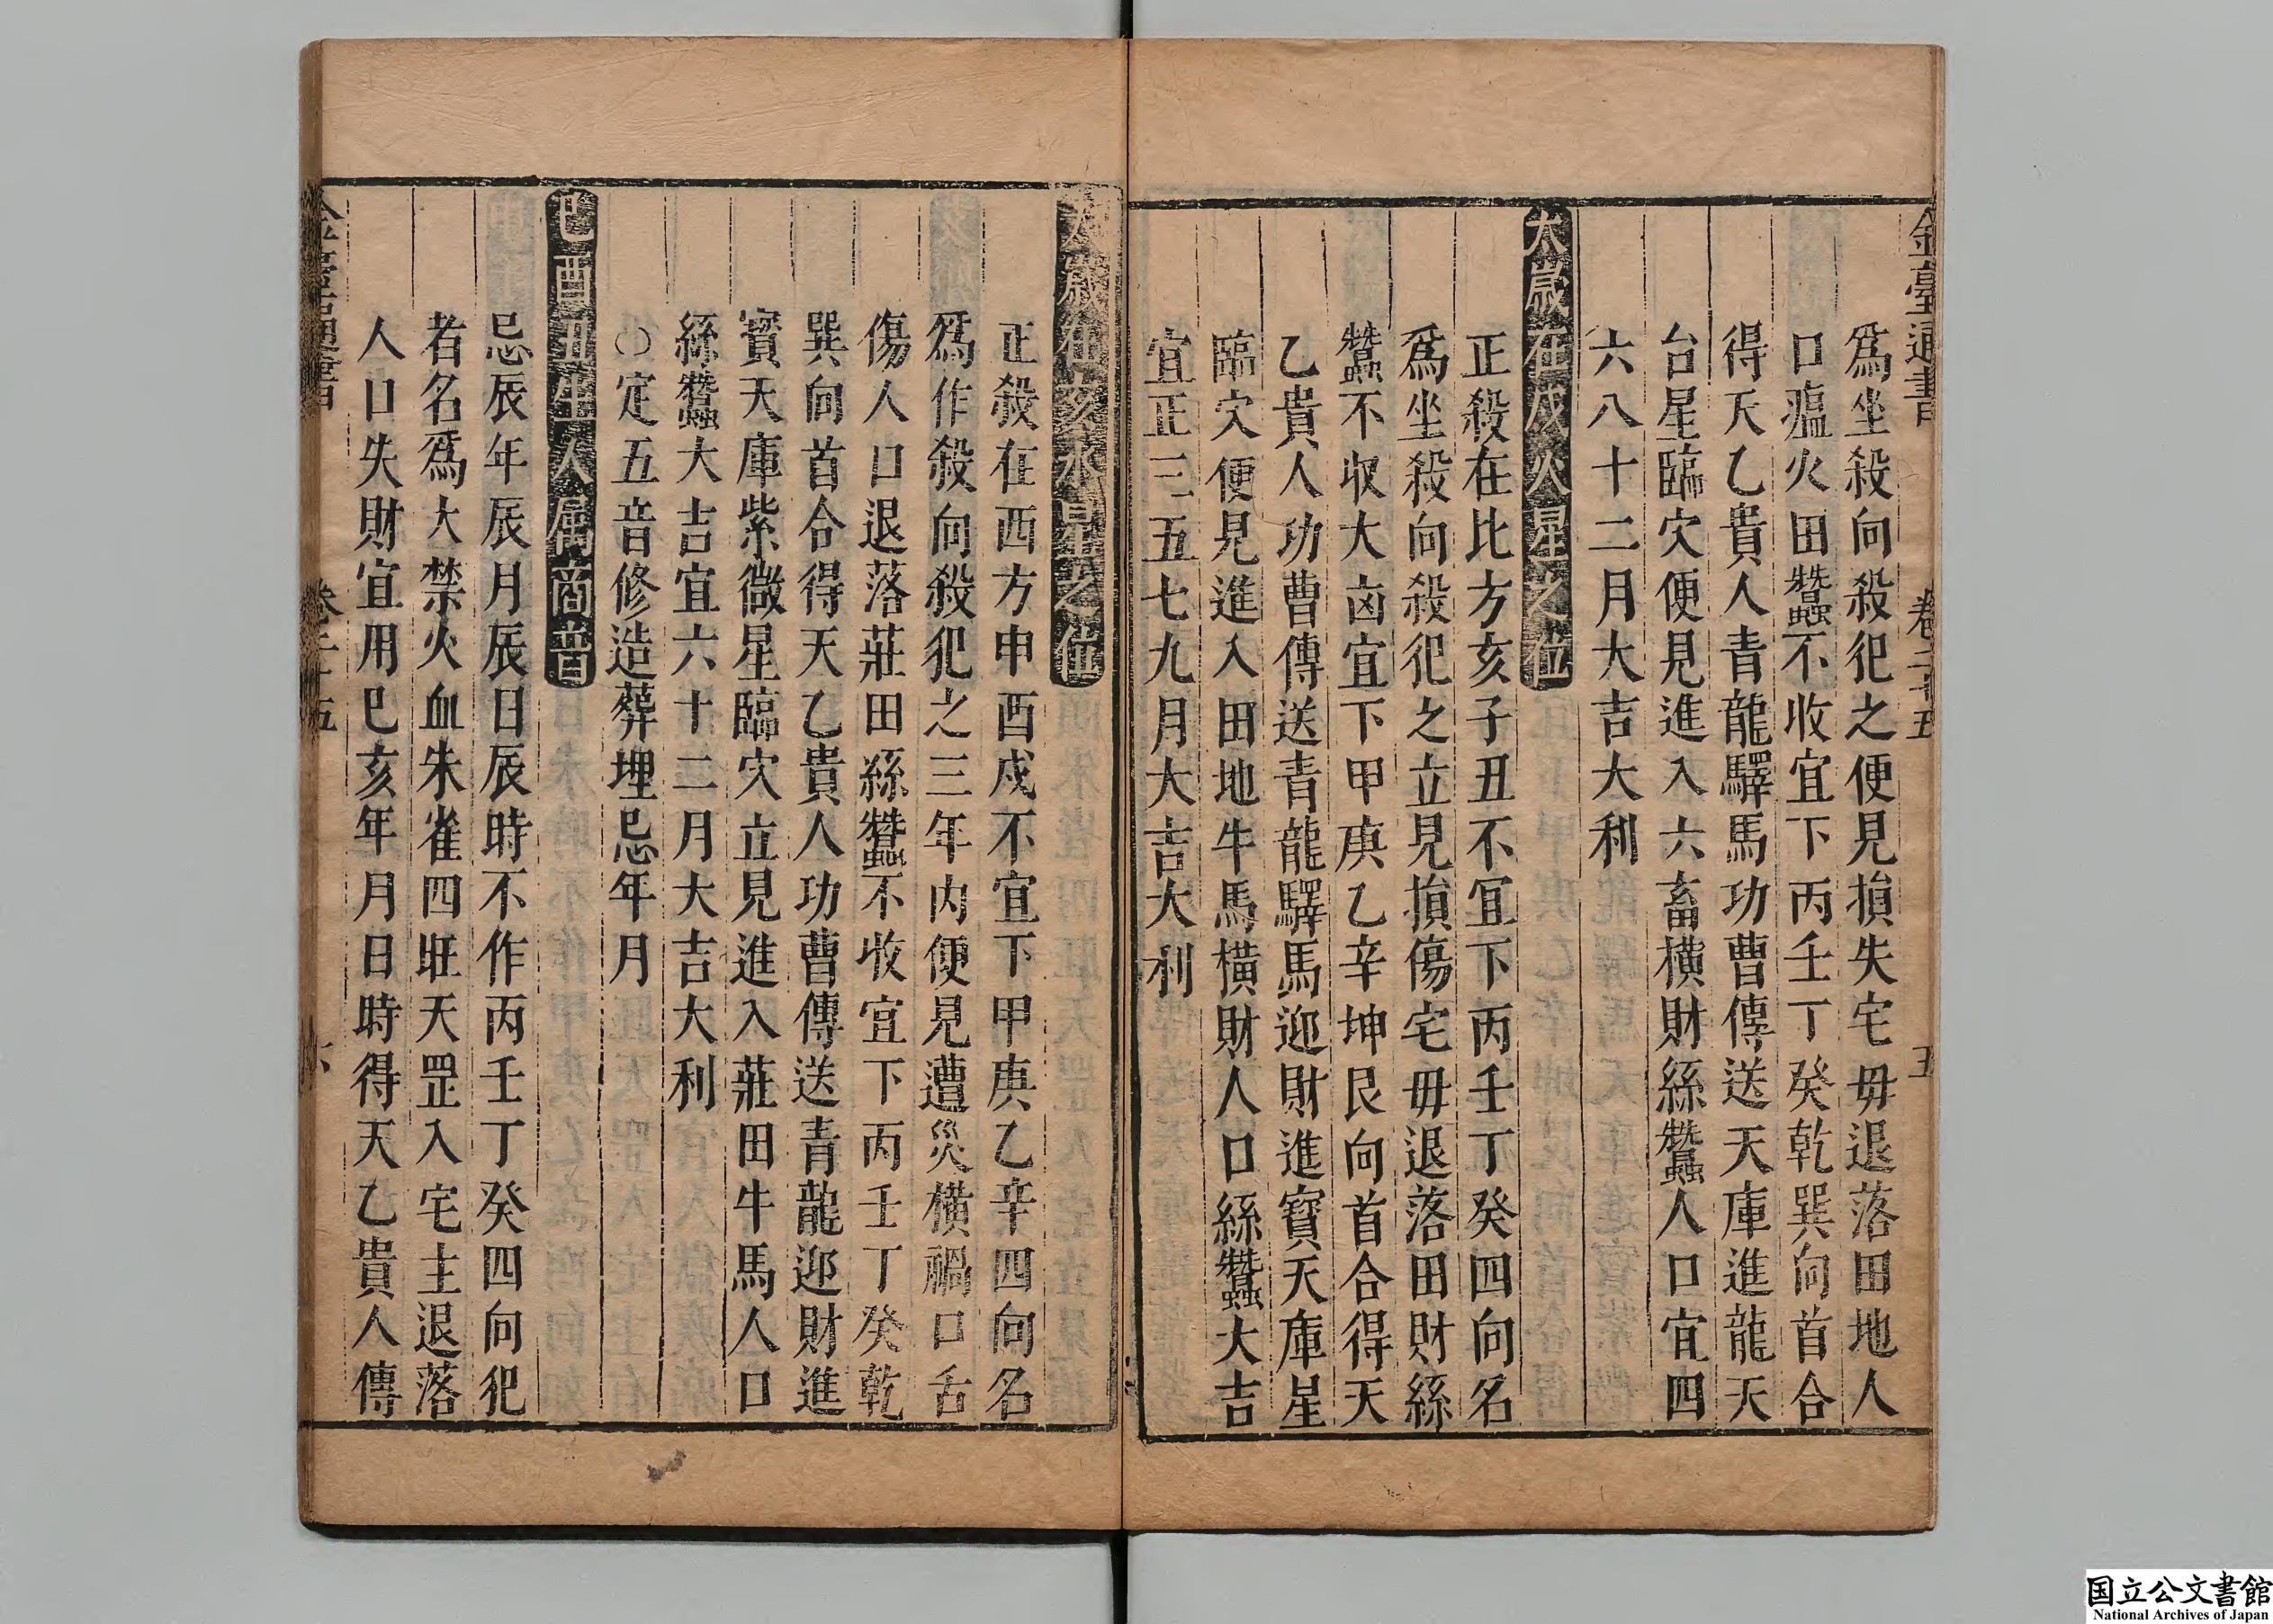 金臺通書 卷二十五 五
爲坐殺向殺犯之便見損失宅毋退落田地人
口瘟火田蠶不收宜下丙壬丁癸乾巽向首合
得天乙貴人青龍驛馬功曹傳送天庫進龍天
台星臨穴便見進入六畜橫財絲蠶人口宜四
六八十二月大吉大利
太歲在戌火星之位
正殺在比方亥子丑不宜下丙壬丁癸四向名
爲坐殺向殺犯之立見損傷宅毋退落田財絲
蠶不收大凶宜下甲庚乙辛坤艮向首合得天
乙貴人功曹傳送青龍驛馬迎財進寳天庫星
臨穴便見進入田地牛馬橫財人口絲蠶大吉
宜正三五七九月大吉大利
太歲在亥水星之位
正殺在西方申酉戌不宜下甲庚乙辛四向名
爲作殺向殺犯之三年内便見遭災橫禍口舌
傷人口退落莊田絲蠶不收宜下丙壬丁癸乾
巽向首合得天乙貴人功曹傳送青龍迎財進
寳天庫紫微星臨穴立見進入莊田牛馬人口
絲蠶大吉宜六十二月大吉大利
○定五音修造葬埋忌年月
巳酉丑生人屬商音
忌辰年辰月辰日辰時不作丙壬丁癸四向犯
者名爲大禁火血朱雀四旺天罡入宅主退落
人口失財宜用巳亥年月日時得天乙貴人傳
金臺通書 卷二十五 六
国立公文書館
National Archives of Japan